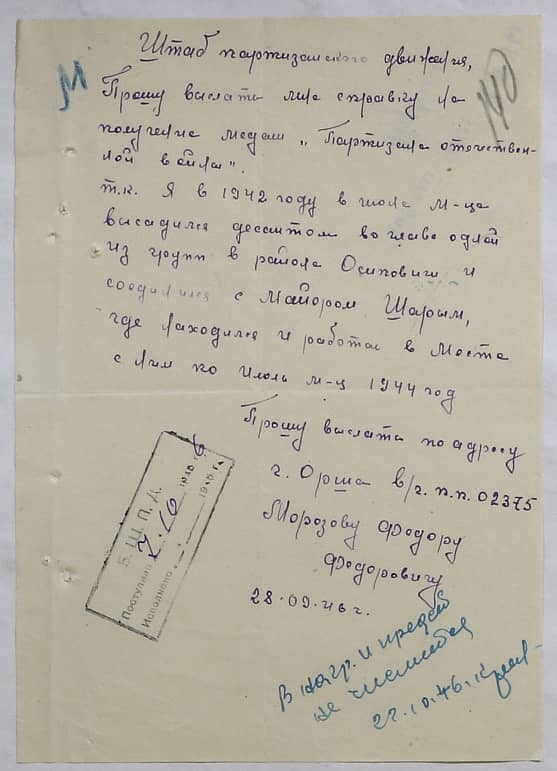 Штаб партизанского движения,
М
140
Прошу выслати мне справку на
получение медали „Партизана отечествен-
ной войны".
т.к. Я в 1942 году в июле м-це
высадился десантом во главе одной
из групп в районе Осиповичи и
соединился с Майором Шарым,
где находился и работал в
с ним по июль м-ц 1944 год
Прошу выслати по адресу
г. Орша в/ч. п.п. 02375
Морозову Федору
Федоровичу
28.09.46 г.
Б. Ш. П. Д.
Поступило 2.10 1946 г.
Исполнено 194 г.
В нагр. и предст
не числится
22.10.46.